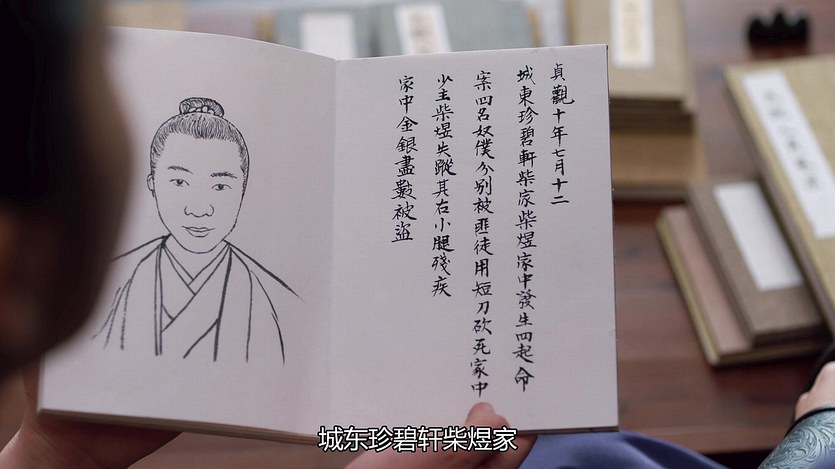 貞觀十年七月十二
城東珍碧軒柴家柴煜家中發生四起命
案四名奴僕分別被匪徒用短刀砍死家中
少主柴煜失蹤其右小腿殘疾
家中金銀盡數被盜
城东珍碧轩柴煜家